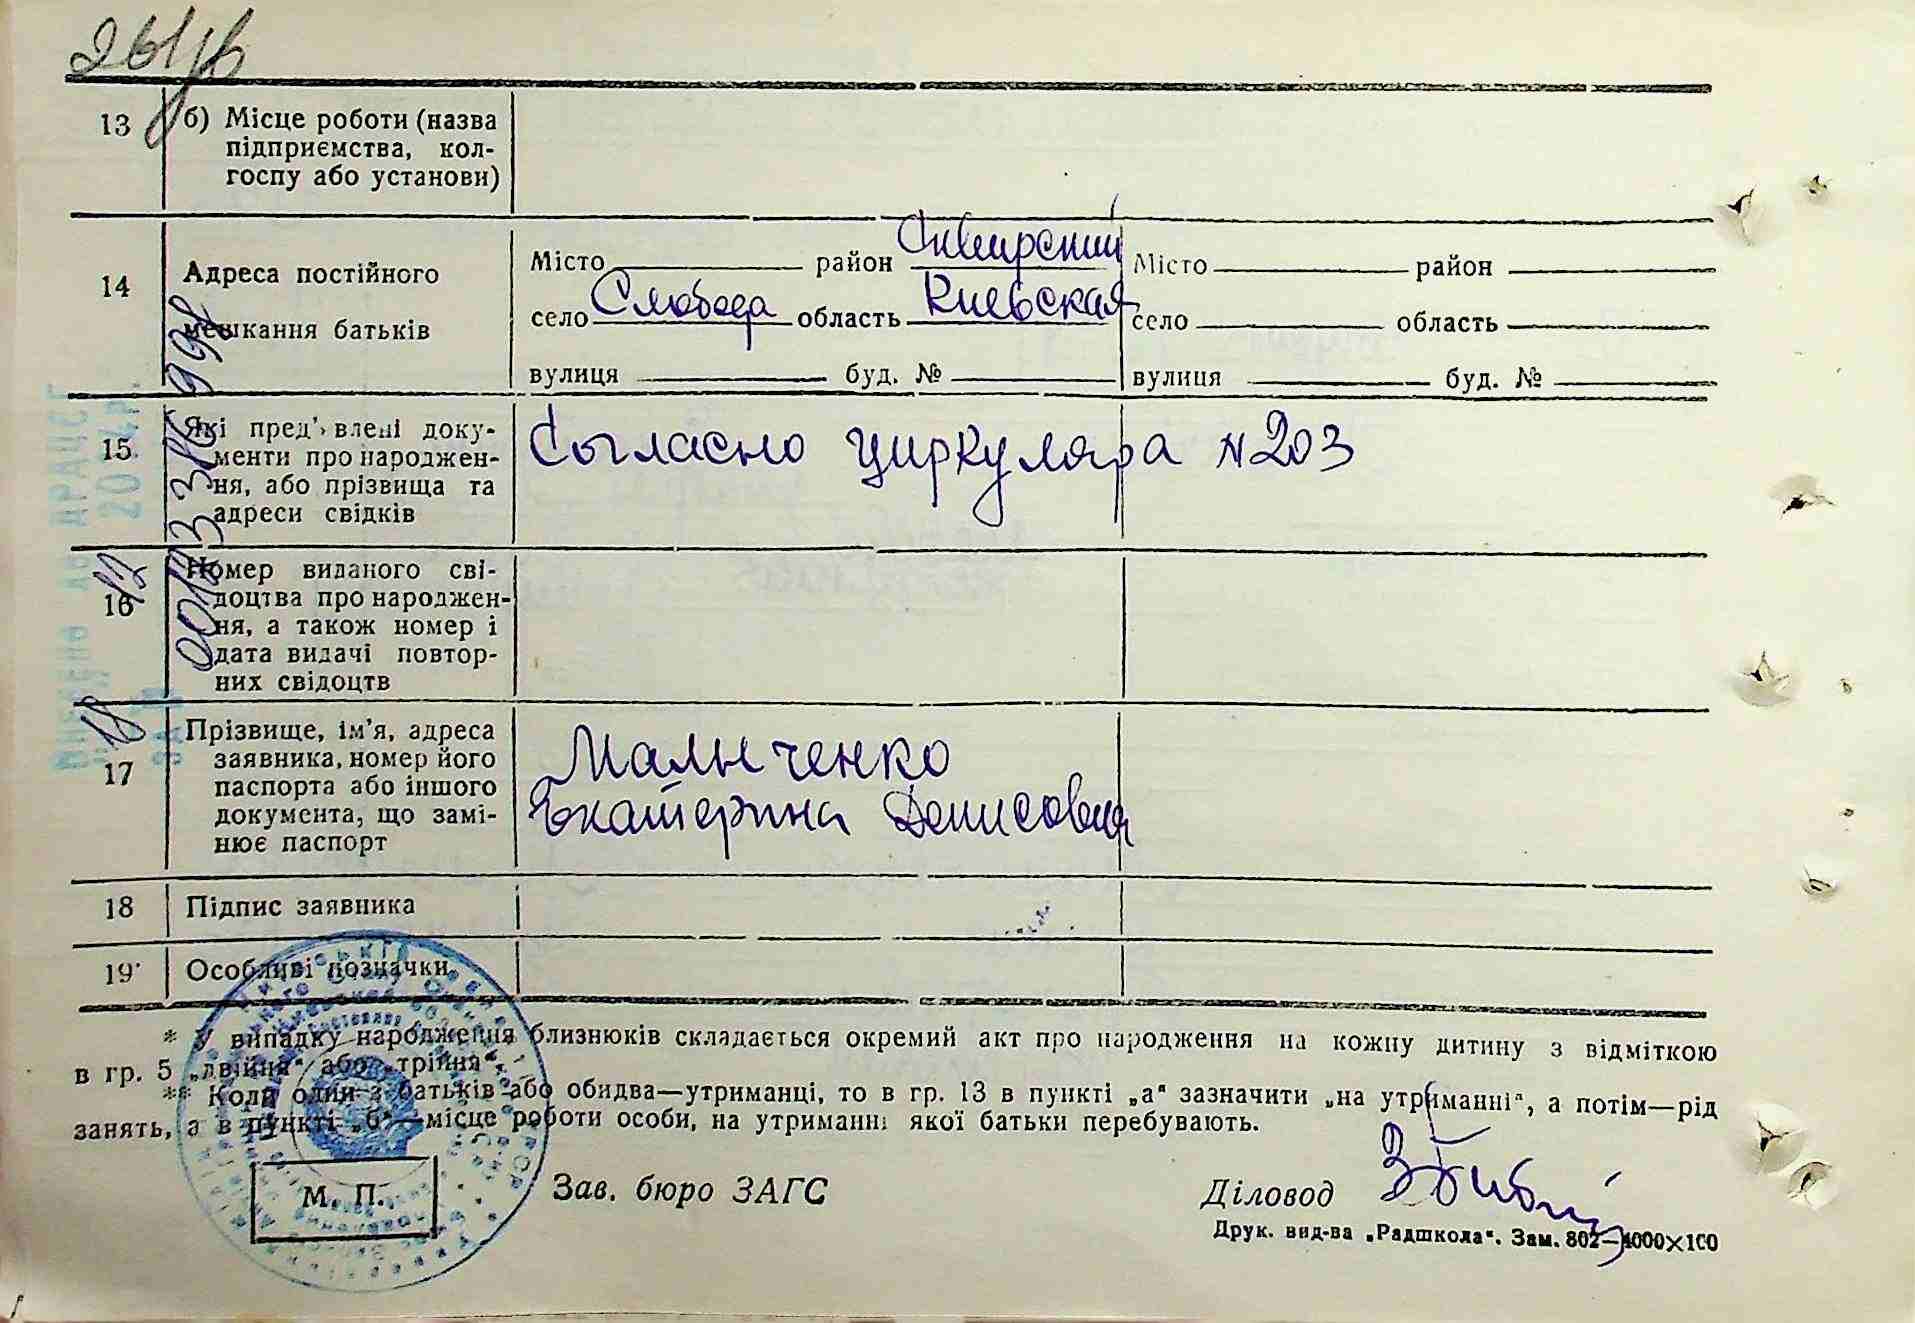 13 б) Місце роботи (назва
підприємства, кол-
госпу або установи)
14 Адреса постійного
мешкання батьків
Місто район Сквирский Місто район
село Слобода область Киевская село область
вулиця буд. № вулиця буд. №
15 Які пред'явлені доку-
менти про народжен-
ня, або прізвища та
адреси свідків
Согласно циркуляра №203
16 Номер виданого сві-
доцтва про народжен-
ня, а також номер і
дата видачі повтор-
них свідоцтв
17 Прізвище, ім'я, адреса
заявника, номер його
паспорта або іншого
документа, що замі-
нює паспорт
Малынченко
Екатерина Денисовна
18 Підпис заявника
19 Особливі позначки
* У випадку народження близнюків складається окремий акт про народження на кожну дитину з відміткою
в гр. 5 „двійня“ або „трійня“
** Коли один з батьків або обидва—утриманці, то в гр. 13 в пункті „а“ зазначити „на утриманні“, а потім—рід
занять, а в пункті „б“—місце роботи особи, на утриманні якої батьки перебувають.
М. П.
Зав. бюро ЗАГС
Діловод
Друк. вид-ва „Радшкола“. Зам. 802—4000×100